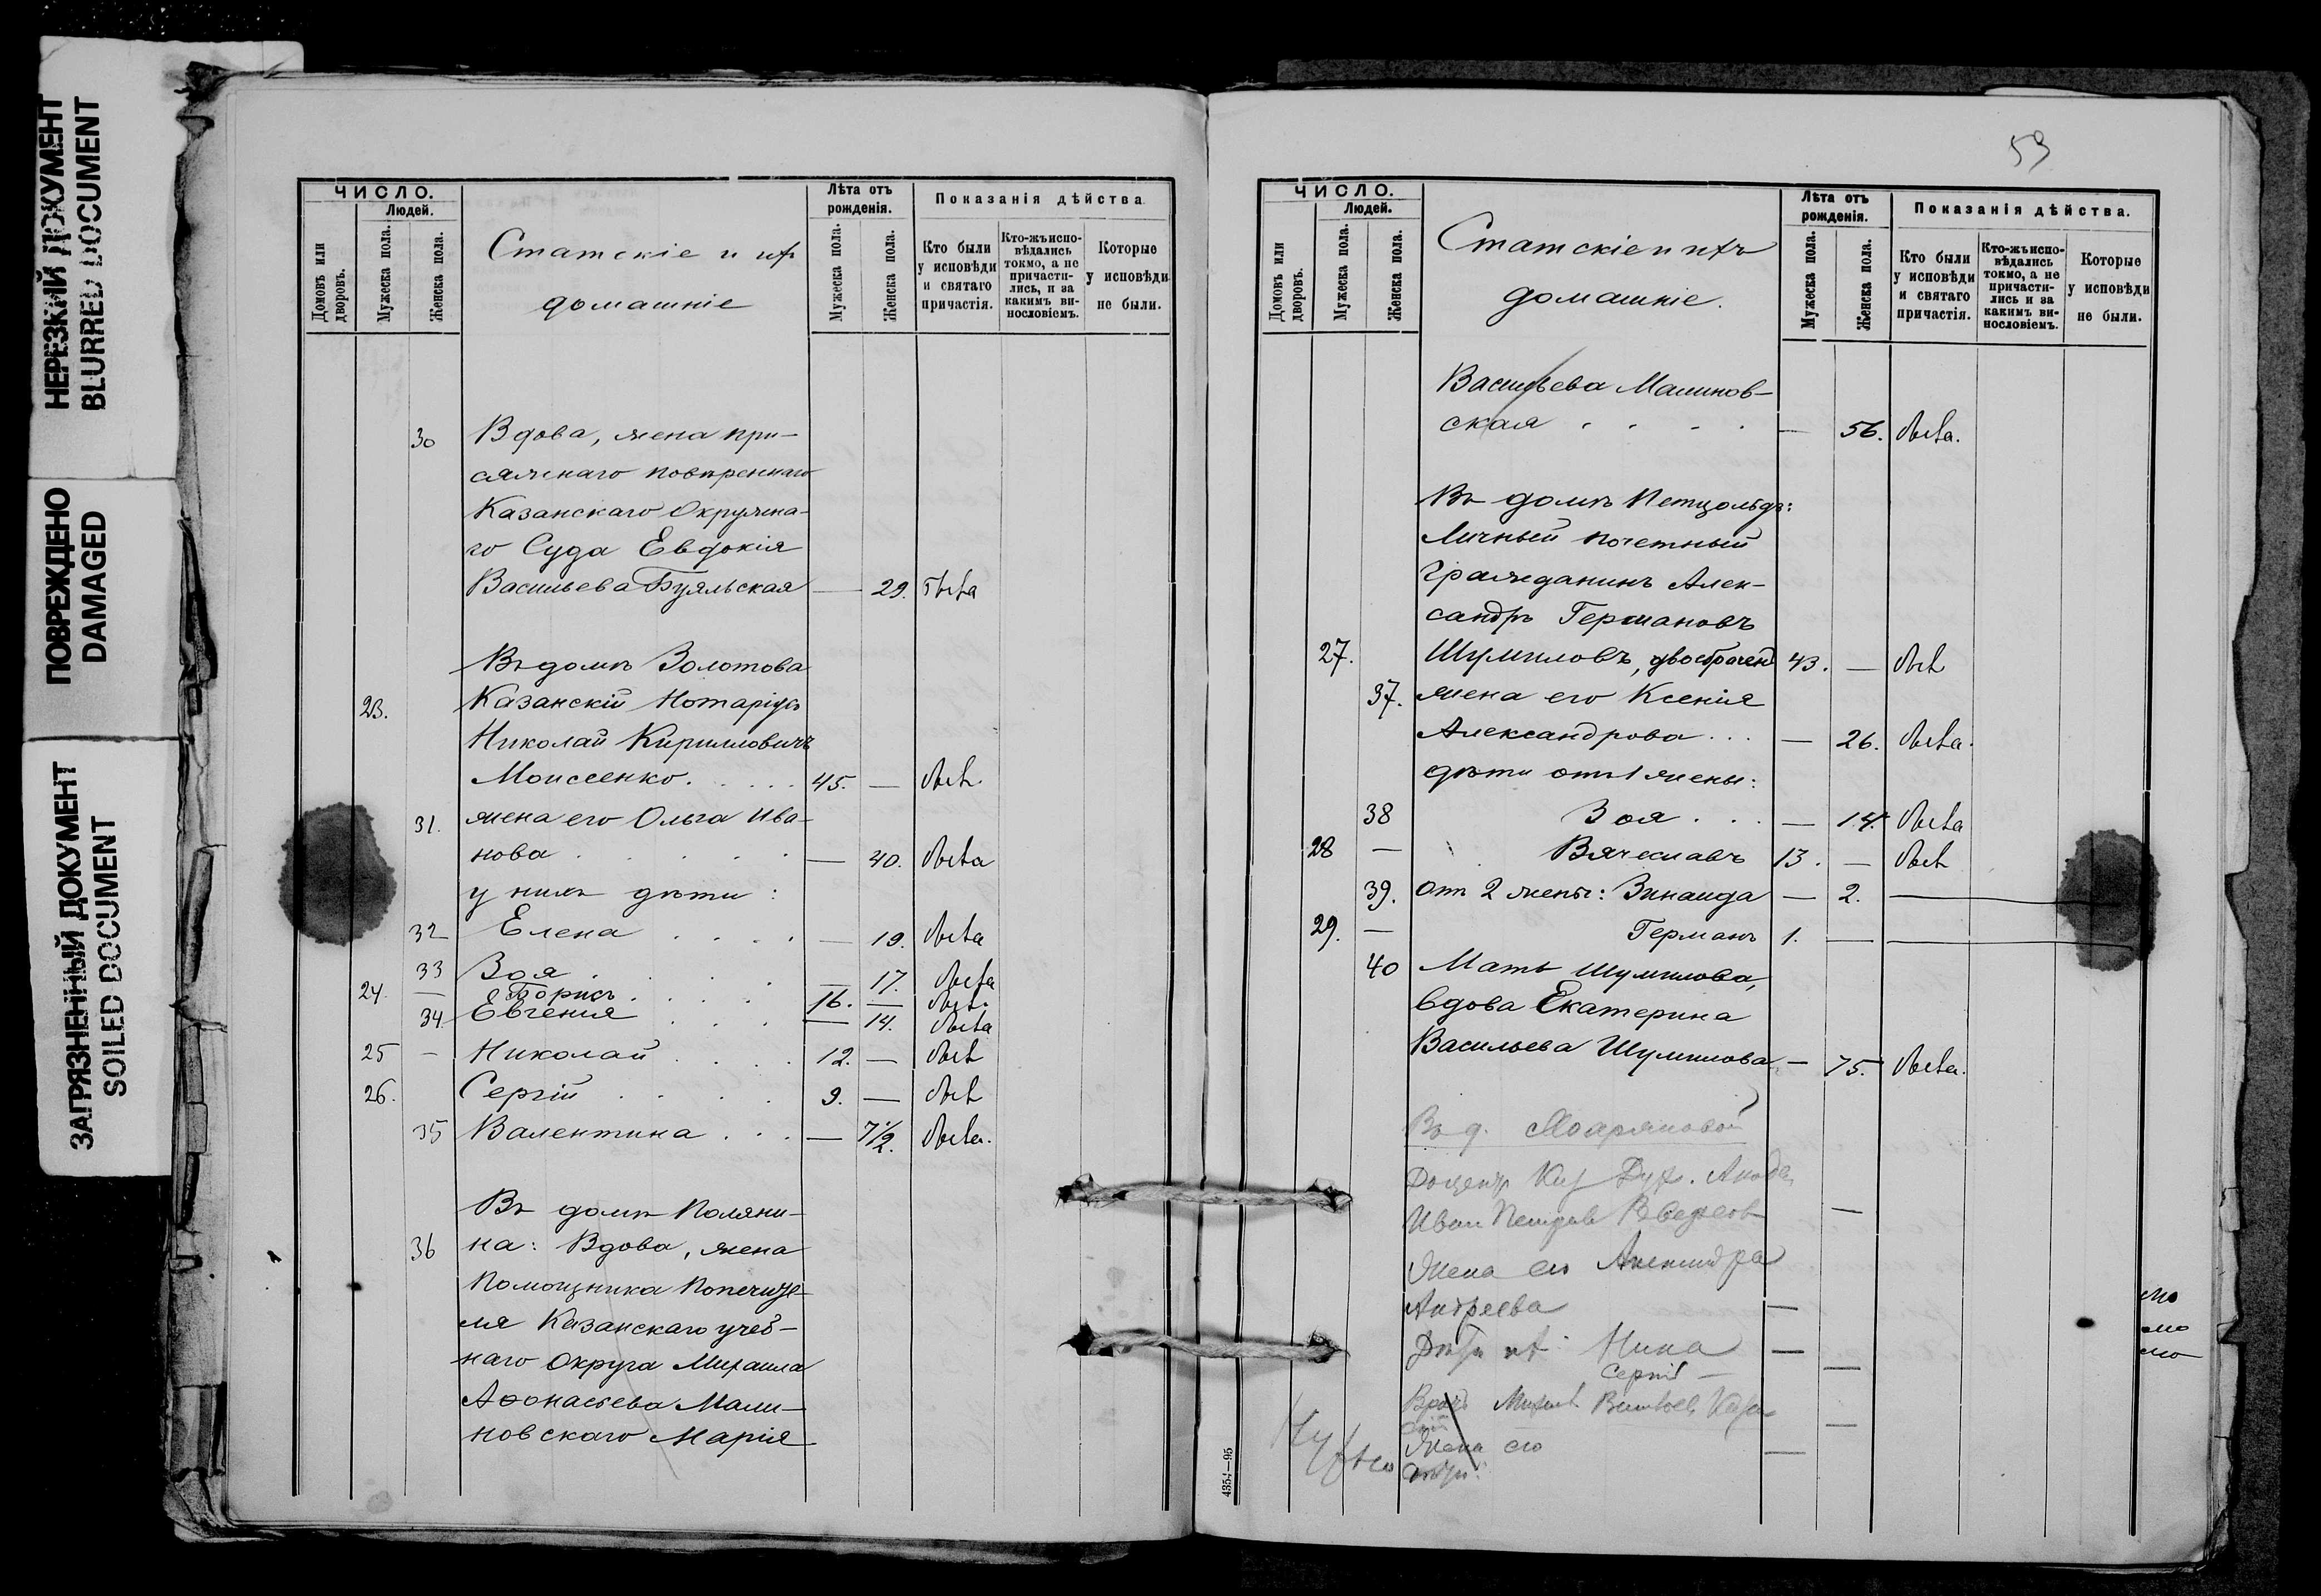 НЕРЕЗКИЙ ДОКУМЕНТ
BLURRED DOCUMENT
ПОВРЕЖДЕНО
DAMAGED
ЗАГРЯЗНЕННЫЙ ДОКУМЕНТ
SOILED DOCUMENT
ЧИСЛО.
Людей.
Домовъ или дворовъ.
Мужеска пола.
Женска пола.
Статскіе и ихъ
домашніе
Лѣта отъ рожденія.
Мужеска пола.
Женска пола.
Показанія дѣйства
Кто были у исповѣди и святаго причастія.
Кто-жъ исповѣдались токмо, а не причастились, и за какимъ винословіемъ.
Которые у исповѣди не были.
30 Вдова, жена при-
сяжнаго повѣреннаго
Казанскаго Окружна-
го Суда Евдокія
Васильева Буяльская — 29. была
Въ домѣ Золотова
23. Казанскій Нотаріусъ
Николай Кирилловичъ
Моисеенко. . . . . 45. — былъ
31. жена его Ольга Ива-
нова . . . . . — 40. была
у нихъ дѣти :
32 Елена . . . . — 19. была
33 Зоя . . . — 17. была
24. — Борисъ . . . . 16. — былъ
34 Евгенія . . . — 14. была
25 — Николай . . . 12. — былъ
26. Сергій . . . . 9. — былъ
35 Валентина . . . — 7½. была.
Въ домѣ Поляни-
36 на: Вдова, жена
Помощника Попечите-
ля Казанскаго учеб-
наго Округа Михаила
Аѳонасьева Мали-
новскаго Марія
59
ЧИСЛО.
Людей.
Домовъ или дворовъ.
Мужеска пола.
Женска пола.
Статскіе и ихъ
домашніе.
Лѣта отъ рожденія.
Мужеска пола.
Женска пола.
Показанія дѣйства.
Кто были у исповѣди и святаго причастія.
Кто-жъ исповѣдались токмо, а не причастились и за какимъ винословіемъ.
Которые у исповѣди не были.
Васильева Малинов-
ская . . . . — 56. была.
Въ домѣ Петцольдъ:
Личный почетный
гражданинъ Алек-
сандръ Германовъ
27. Шумиловъ, двоебрачен 43. — былъ
37. жена его Ксенія
Александрова . . . — 26. была.
дѣти отъ 1 жены:
38 Зоя . . . — 14. была
28 — Вячеславъ 13. — былъ
39. отъ 2 жены: Зинаида — 2. —
29. — Германъ 1. — —
40 Мать Шумилова,
вдова Екатерина
Васильева Шумилова — 75. была.
Въ д.
Доцентъ Каз Дух. Акаде
Иван Петров —
Жена его Александра
Андреева —
Дѣти их: Нина —
Сергій —
Врачъ —
Жена его —
4354—95